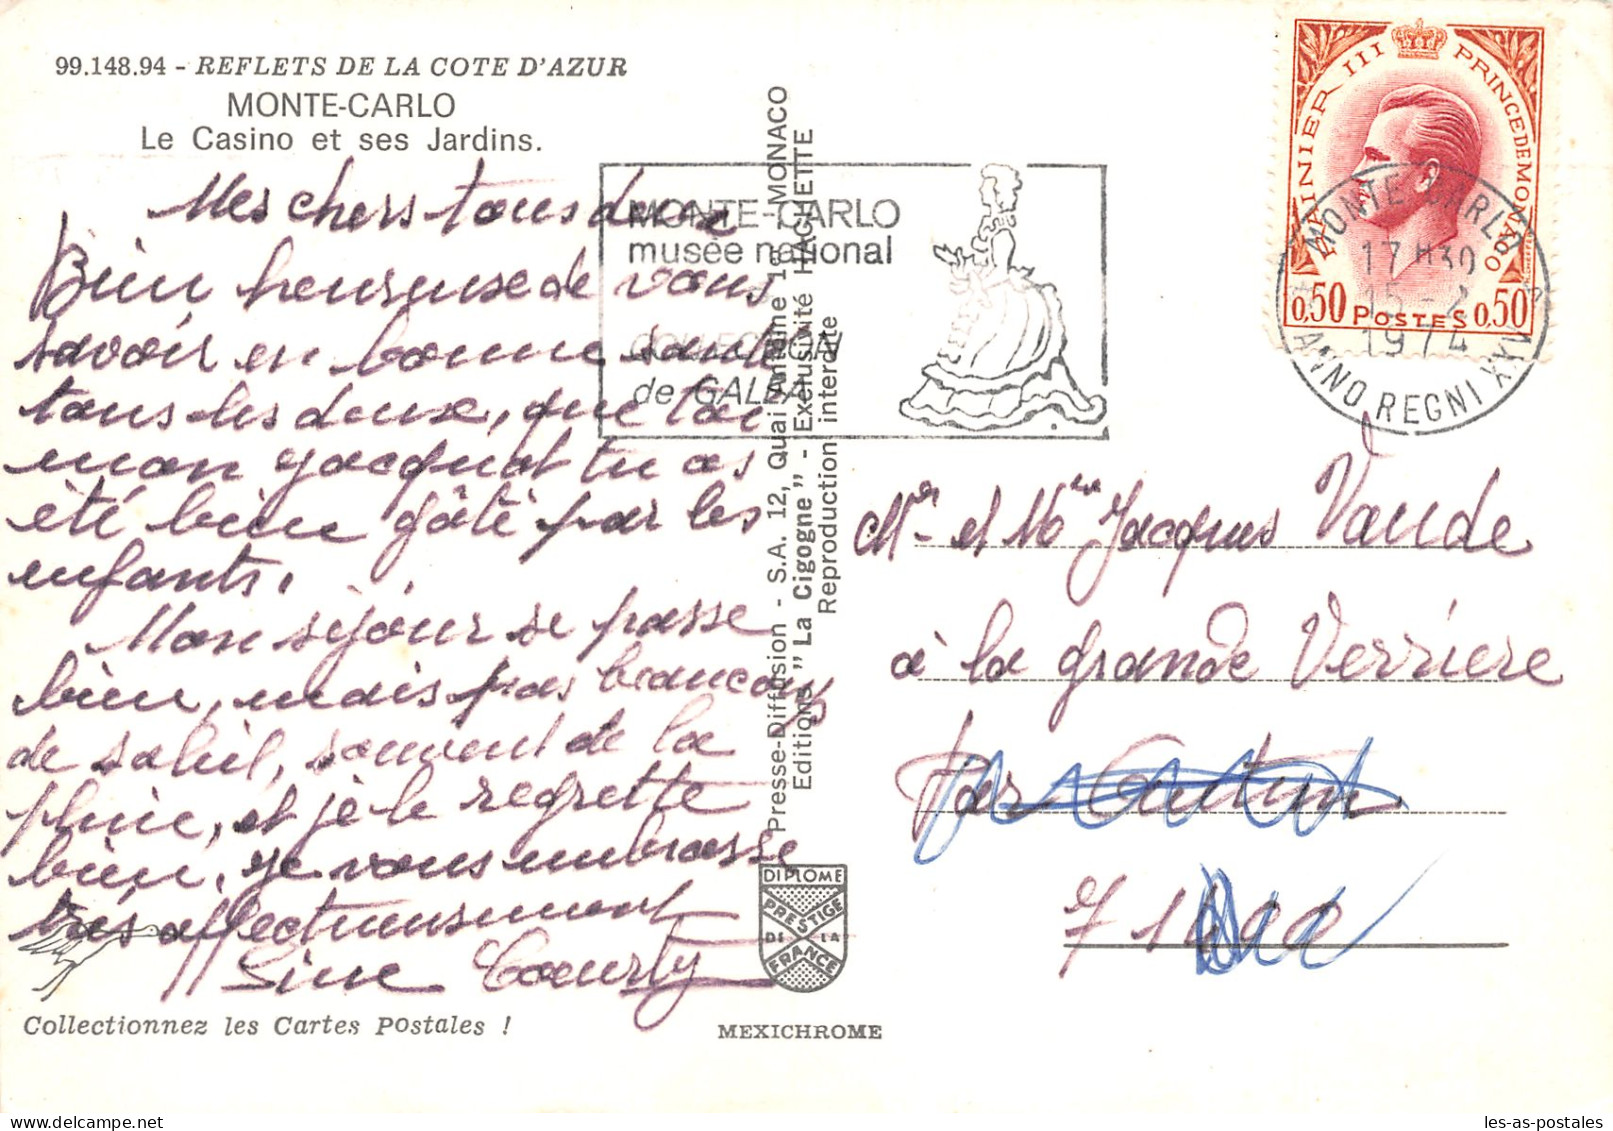 99.148.94 - REFLETS DE LA COTE D'AZUR
MONTE-CARLO
Le Casino et ses Jardins.
Mes chers tous deux
Bien heureuse de vous
savoir en bonne santé
tous les deux, que toi
mon Jacquot tu as
été bien gâté par les
enfants.
Mon séjour se passe
bien, mais pas beaucoup
de soleil, souvent de la
pluie, et je le regrette
bien, je vous embrasse
très affectueusement
Line
Collectionnez les Cartes Postales !
Presse-Diffusion - S.A. 12, Quai Antoine 1er MONACO
Editions "La Cigogne" - Exclusivité HACHETTE
Reproduction interdite
DIPLOME
PRESTIGE
DE LA
FRANCE
MEXICHROME
MONTE-CARLO
musée national
COLLECTION
de GALEA
RAINIER III PRINCE DE MONACO
0,50 POSTES 0,50
MONTE-CARLO
17 H30
15 - 2
1974
ANNO REGNI XXV
Mr et Mme Jacques Vaude
à la grande Verrière
par Autun
71
les-as-postales